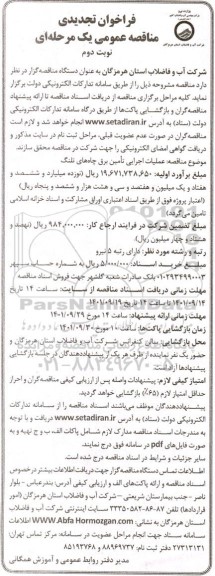 فراخوان تجدیدی
مناقصه عمومی یک مرحله‌ای
نوبت دوم
شرکت آب و فاضلاب استان هرمزگان به عنوان دستگاه مناقصه‌گزار در نظر
دارد مناقصه مشروحه ذیل را از طریق سامانه تدارکات الکترونیکی دولت برگزار
نماید. کلیه مراحل برگزاری مناقصه از دریافت اسناد مناقصه تا ارائه پیشنهاد
مناقصه‌گران و بازگشایی پاکت‌ها از طریق درگاه سامانه تدارکات الکترونیکی
دولت (ستاد) به آدرس www.setadiran.ir انجام خواهد شد و لازم است
مناقصه‌گران در صورت عدم عضویت قبلی، مراحل ثبت نام در سایت مذکور و
دریافت گواهی امضای الکترونیکی را جهت شرکت در مناقصه محقق سازند.
موضوع مناقصه: عملیات اجرایی تأمین برق چاه‌های تلنگ
مبلغ برآورد اولیه: ۱۹,۶۷۱,۷۳۸,۶۵۰ ریال (نوزده میلیارد و ششصد و
هفتاد و یک میلیون و هفتصد و سی و هشت هزار و ششصد و پنجاه ریال)
(اعتبار پروژه فوق از طریق اسناد اعتباری اوراق مشارکت و اسناد خزانه اسلامی
تامین می‌گردد)
مبلغ تضمین شرکت در فرایند ارجاع کار: ۹۸۴,۰۰۰,۰۰۰ ریال (نهصد و
هشتاد و چهار میلیون ریال)
رتبه و رشته مورد نظر: دارای رتبه ۵ نیرو
مبلغ خرید اسناد: ۵۰۰,۰۰۰ ریال به شماره حساب سپهر
۰۱۰۲۹۳۴۹۹۰۰۳ بانک صادرات شعبه گلشهر جهت فروش اسناد مناقصه
مهلت زمانی دریافت اسناد مناقصه از سامانه: ساعت ۱۴ تاریخ
۱۴۰۱/۰۹/۱۴ تا ساعت ۱۴ تاریخ ۱۴۰۱/۰۹/۱۹
مهلت زمانی ارائه پیشنهاد: ساعت ۱۴ مورخ ۱۴۰۱/۰۹/۲۹
زمان بازگشایی پاکت‌ها: ساعت ۱۰ مورخ ۱۴۰۱/۰۹/۳۰
محل بازگشایی: سالن کنفرانس شرکت آب و فاضلاب استان هرمزگان و
حضور یک نفر نماینده از طرف هر یک از پیشنهاددهندگان در جلسه بازگشایی
پیشنهادها آزاد است.
امتیاز کیفی لازم: پیشنهادات واصله پس از ارزیابی کیفی مناقصه‌گران و احراز
حداقل امتیاز لازم (۶۵٪) بازگشایی خواهد گردید.
پیشنهاددهندگان موظف می‌باشند اسناد مناقصه را از سامانه تدارکات
الکترونیکی دولت (ستاد) به آدرس www.setadiran.ir دریافت و با توجه
به مندرجات اسناد مناقصه مدارک لازم شامل پاکات الف، ب و ج تهیه و به
صورت فایل‌های pdf در سامانه فوق درج نمایند.
سایر جزئیات و شرایط در اسناد مناقصه درج شده است.
اطلاعات تماس دستگاه مناقصه‌گزار جهت دریافت اطلاعات بیشتر در خصوص
اسناد مناقصه و ارائه پاکت‌های الف و ارزیابی کیفی: آدرس: بندرعباس - بلوار
ناصر - جنب بیمارستان شریعتی - شرکت آب و فاضلاب استان هرمزگان (امور
قراردادها) تلفن: ۸۷-۳۳۳۵۰۵۸۲ سایت اینترنتی شرکت آب و فاضلاب
استان هرمزگان به نشانی: WWW.Abfa Hormozgan.com اطلاعات
تماس سامانه ستاد جهت انجام مراحل عضویت در سامانه: مرکز تماس تهران:
۲۷۳۱۳۱۳۱ دفتر ثبت نام: ۸۸۹۶۹۷۳۷ و ۸۵۱۹۳۷۶۸
مدیر دفتر روابط عمومی و آموزش همگانی